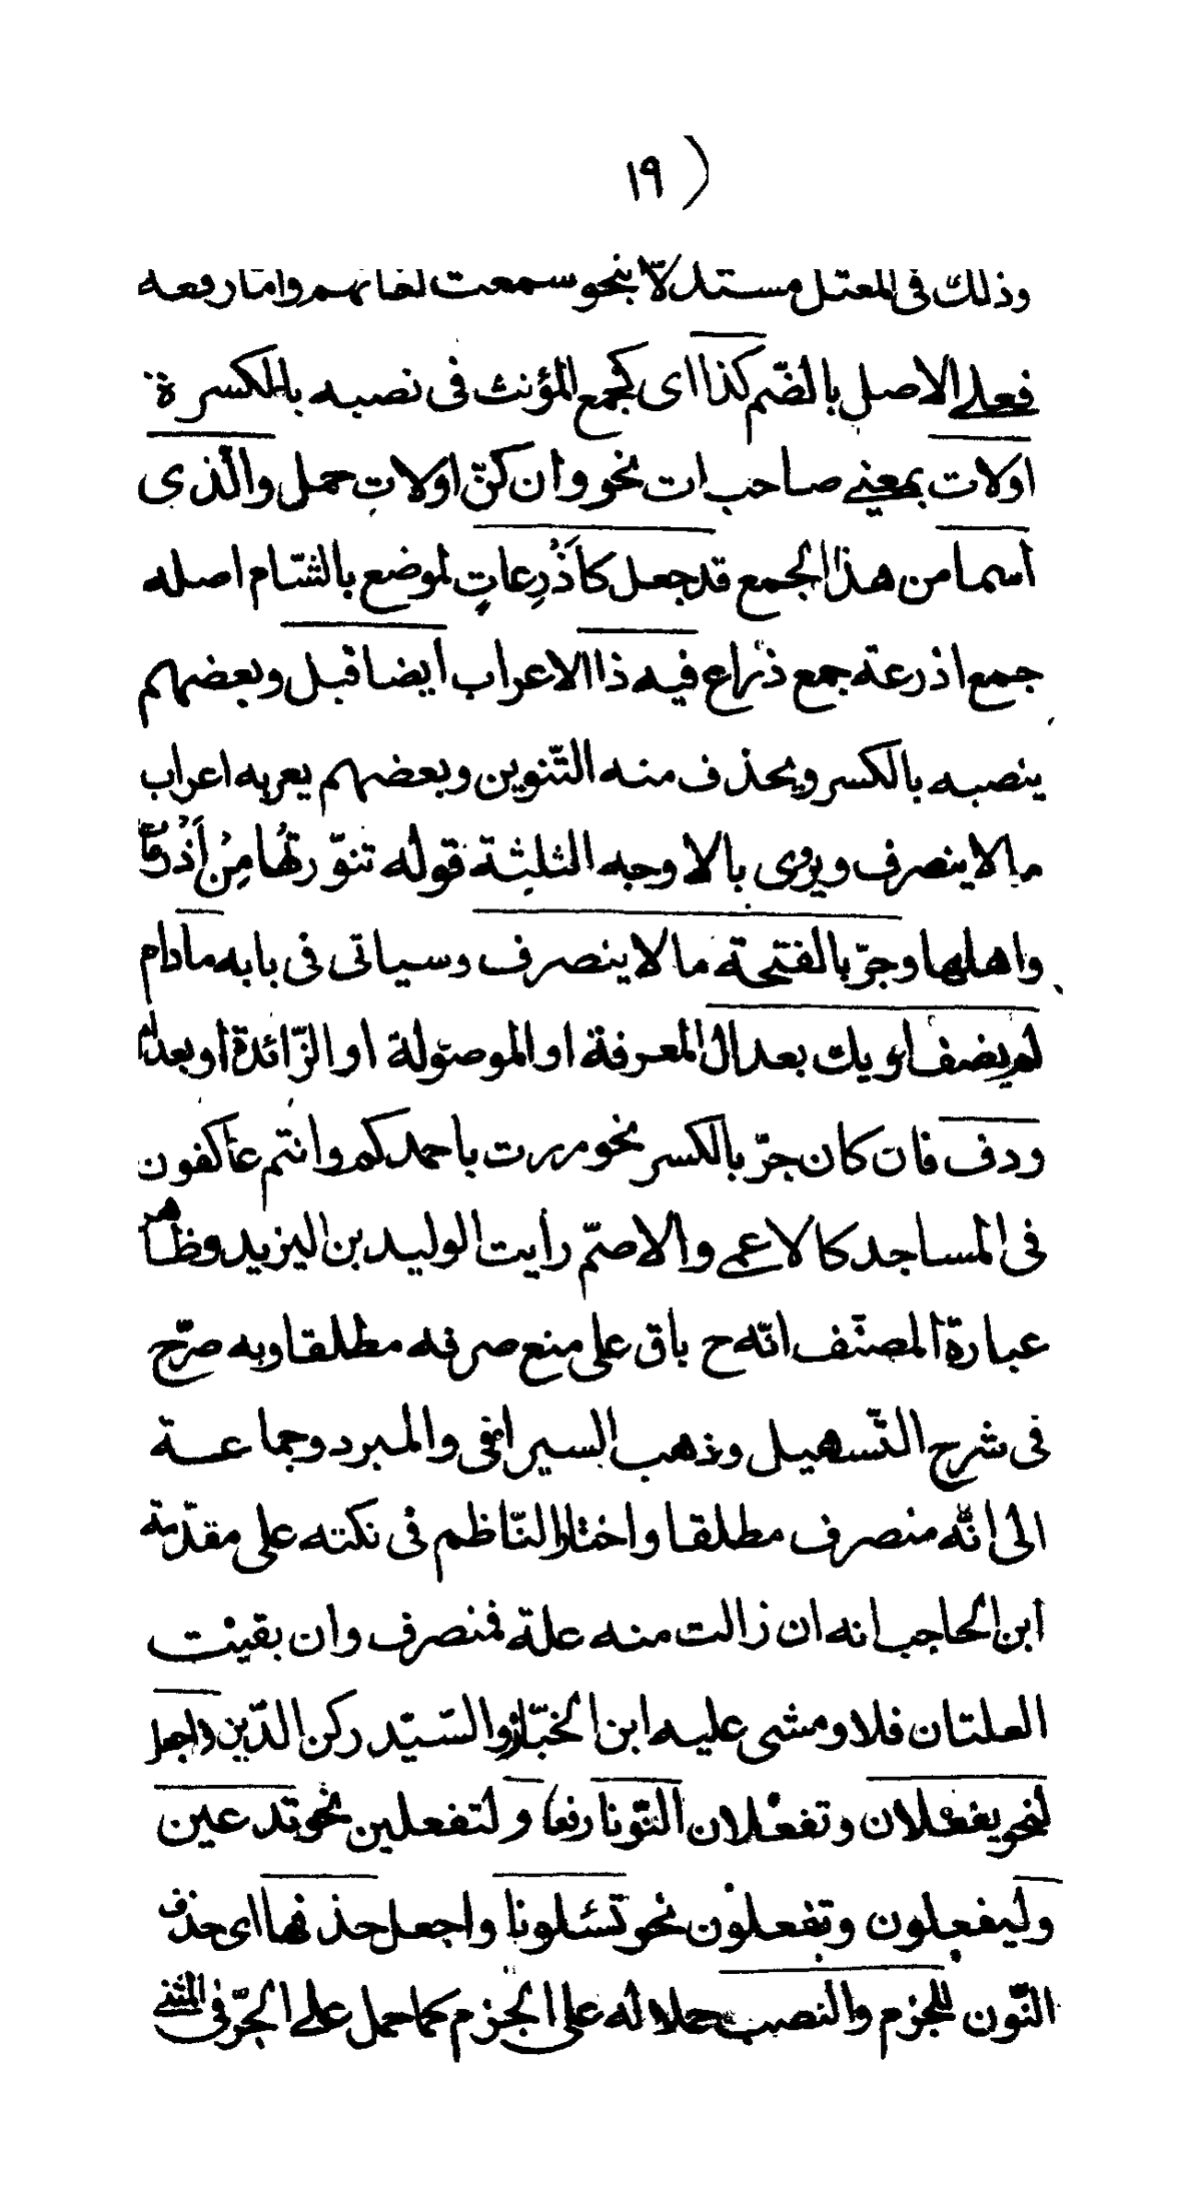 ( ١٩
وذلك فى المعتل مستدلّا بنحو سمعت لغاتهم وامّا رفعه
فعلى الاصل بالضّم كذا اى كجمع المؤنث فى نصبه بالكسرة
اولات بمعنى صاحبات نحو وان كنّ اولات حمل والّذى
اسما من هذا الجمع قد جعل كَأَذْرِعاتٍ لموضع بالشّام اصله
جمع اذرعة جمع ذراع فيه ذا الاعراب ايضا قبل وبعضهم
ينصبه بالكسر ويحذف منه التّنوين وبعضهم يعربه اعراب
مالا ينصرف ويروى بالاوجه الثلثة قوله تنوّرتُها مِنْ اَذْرعات
واهلها وجرّ بالفتحة مالا ينصرف وسياتى فى بابه مادام
لم يضف او يك بعد ال المعرفة او الموصولة او الزّائدة او بعد ام
ردف فان كان جرّ بالكسر نحو مررت باحمدكم وانتم عاكفون
فى المساجد كالاعمى والاصمّ رأيت الوليد بن اليزيد وظاهر
عبارة المصنّف انّه ح باق على منع صرفه مطلقا وبه صرّح
فى شرح التّسهيل وذهب السيرافى والمبرد وجماعة
الى انّه منصرف مطلقا واختار النّاظم فى نكته على مقدّمة
ابن الحاجب انه ان زالت منه علة فمنصرف وان بقيت
العلتان فلا ومشى عليه ابن الخبّاز والسّيّد ركن الدّين واجعل
لنحو يفعلان وتفعلان النّونا رفعا ولتفعلين نحو تدعين
وليفعلون وتفعلون نحو تسئلونا واجعل حذفها اى حذف
النّون للجزم والنصب حملا له على الجزم كما حمل على الجرّ فى المثنى